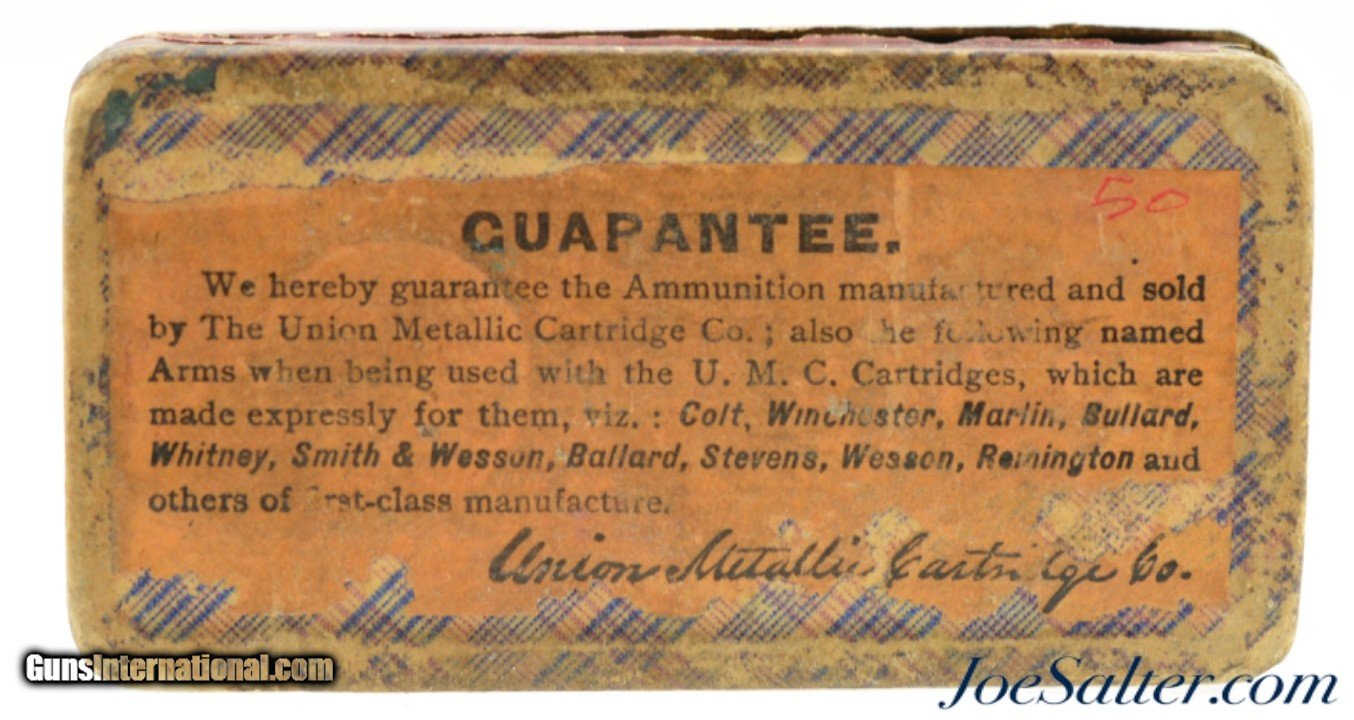 50
GUARANTEE.
We hereby guarantee the Ammunition manufactured and sold
by The Union Metallic Cartridge Co.; also the following named
Arms when being used with the U. M. C. Cartridges, which are
made expressly for them, viz.: Colt, Winchester, Marlin, Bullard,
Whitney, Smith & Wesson, Ballard, Stevens, Wesson, Remington and
others of first-class manufacture.
Union Metallic Cartridge Co.
GunsInternational.com
JoeSalter.com